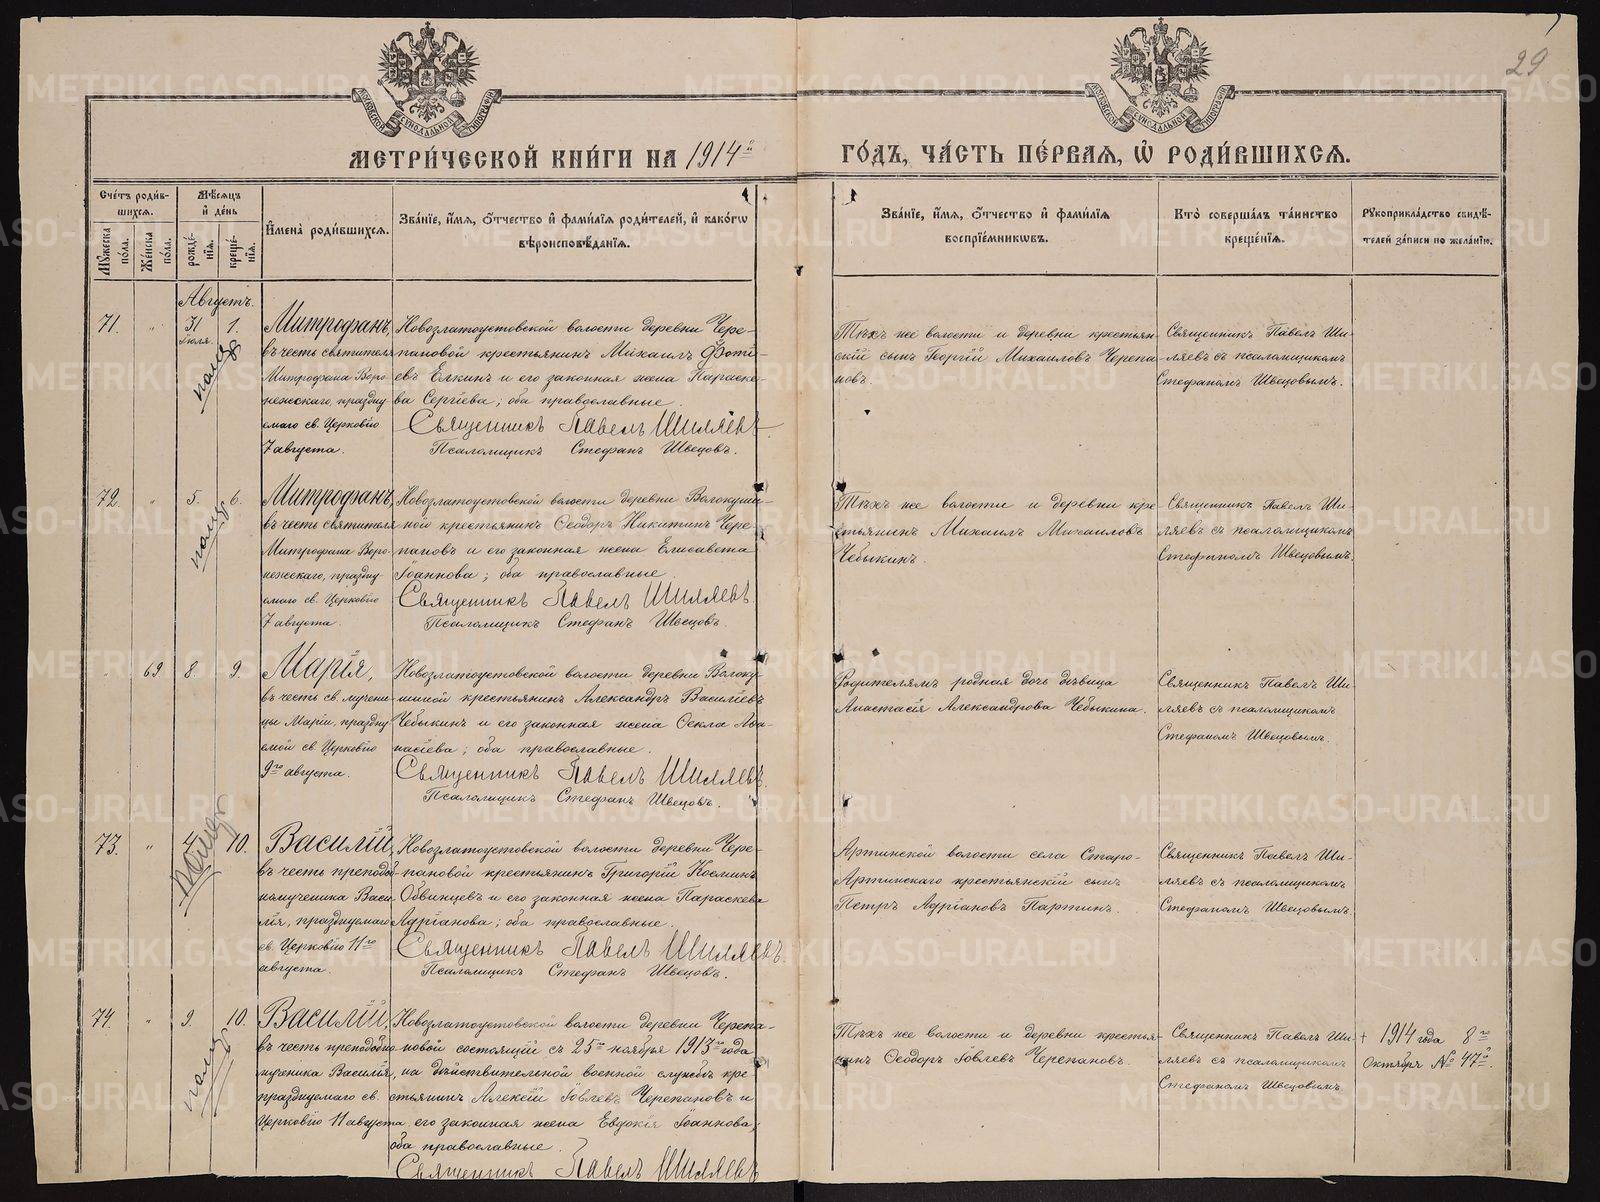 29
МЕТРИ́ЧЕСКОЙ КНИ́ГИ НА 1914й
ГО́ДЪ, ЧА́СТЬ ПЕ́РВАЯ, Ѡ҆ РОДИ́ВШИХСЯ.
Сче́тъ роди́в-
шихся.
Мꙋ́жеска по́ла.
Же́нска по́ла.
Мѣ́сяцъ
и҆ де́нь
рожде́-
нїя.
креще́-
нїя.
И҆мена̀ роди́вшихся.
Зва́нїе, и҆́мя, ѻ҆́тчество и҆ фами́лїя роди́телей, и҆ како́гѡ
вѣроисповѣ́данїя.
Зва́нїе, и҆́мя, ѻ҆́тчество и҆ фами́лїя
воспрїе́мникѡвъ.
Кто̀ соверша́лъ та́инство
креще́нїя.
Рꙋкоприкла́дство свидѣ́-
телей за́писи по жела́нїю.
Августъ.
71.
"
31
Іюля
1.
Митрофанъ,
въ честь святителя
Митрофана Воро-
нежскаго, праздну-
емаго св. Церковію
7 августа.
Новозлатоустовской волости деревни Чере-
пановой крестьянинъ Михаилъ Фоті-
евъ Елкинъ и его законная жена Параске-
ва Сергіева; оба православные.
Священникъ Павелъ Шиляевъ
Псаломщикъ Стефанъ Швецовъ.
Тѣхъ же волости и деревни крестьян-
скій сынъ Георгій Михаиловъ Черепа-
новъ.
Священникъ Павелъ Ши-
ляевъ съ псаломщикомъ
Стефаномъ Швецовымъ.
72.
"
5.
6.
Митрофанъ,
въ честь святителя
Митрофана Воро-
нежскаго, праздну-
емаго св. Церковію
7 августа.
Новозлатоустовской волости деревни Волокуши-
ной крестьянинъ Ѳеодоръ Никитинъ Чере-
пановъ и его законная жена Елисавета
Іоаннова; оба православные.
Священникъ Павелъ Шиляевъ
Псаломщикъ Стефанъ Швецовъ.
Тѣхъ же волости и деревни кре-
стьянинъ Михаилъ Михаиловъ
Чебыкинъ.
Священникъ Павелъ Ши-
ляевъ съ псаломщикомъ
Стефаномъ Швецовымъ.
"
69
8.
9.
Марія,
въ честь св. мучени-
цы Маріи, праздну-
емой св. Церковію
9го августа.
Новозлатоустовской волости деревни Волоку-
шиной крестьянинъ Александръ Василіевъ
Чебыкинъ и его законная жена Ѳекла Аѳа-
насіева; оба православные.
Священникъ Павелъ Шиляевъ
Псаломщикъ Стефанъ Швецовъ.
Родителямъ родная дочь дѣвица
Анастасія Александрова Чебыкина.
Священникъ Павелъ Ши-
ляевъ съ псаломщикомъ
Стефаномъ Швецовымъ.
73.
"
4.
10.
Василій,
въ честь преподоб-
номученика Васи-
лія, празднуемаго
св. Церковію 11го
августа.
Новозлатоустовской волости деревни Чере-
пановой крестьянинъ Григорій Косминъ
Обвинцевъ и его законная жена Параскева
Адріанова; оба православные.
Священникъ Павелъ Шиляевъ.
Псаломщикъ Стефанъ Швецовъ.
Артинской волости села Старо-
Артинскаго крестьянскій сынъ
Петръ Адріановъ Партинъ.
Священникъ Павелъ Ши-
ляевъ съ псаломщикомъ
Стефаномъ Швецовымъ.
74.
"
9.
10.
Василій,
въ честь преподобно-
мученика Василія,
празднуемаго св.
Церковію 11 августа.
Новозлатоустовской волости деревни Черепа-
новой состоящій съ 25го ноября 1913го года
на дѣйствительной военной службѣ кре-
стьянинъ Алексій Іовлевъ Черепановъ и
его законная жена Евдокія Іоаннова;
оба православные.
Священникъ Павелъ Шиляевъ
Тѣхъ же волости и деревни крестья-
нинъ Ѳеодоръ Іовлевъ Черепановъ.
Священникъ Павелъ Ши-
ляевъ съ псаломщикомъ
Стефаномъ Швецовымъ.
+ 1914 года 8го
Октября № 47й.
METRIKI.GASO-URAL.RU